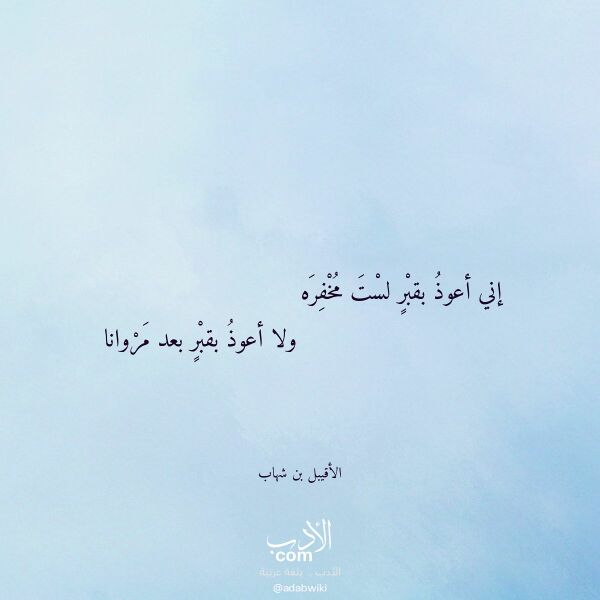 إني أعوذُ بقبْرٍ لسْتَ مُخْفِرَه
ولا أعوذُ بقبْرٍ بعد مَرْوانا
الأقيبل بن شهاب
الأدب
com
الأدب .. بلغة عربية
@adabwiki